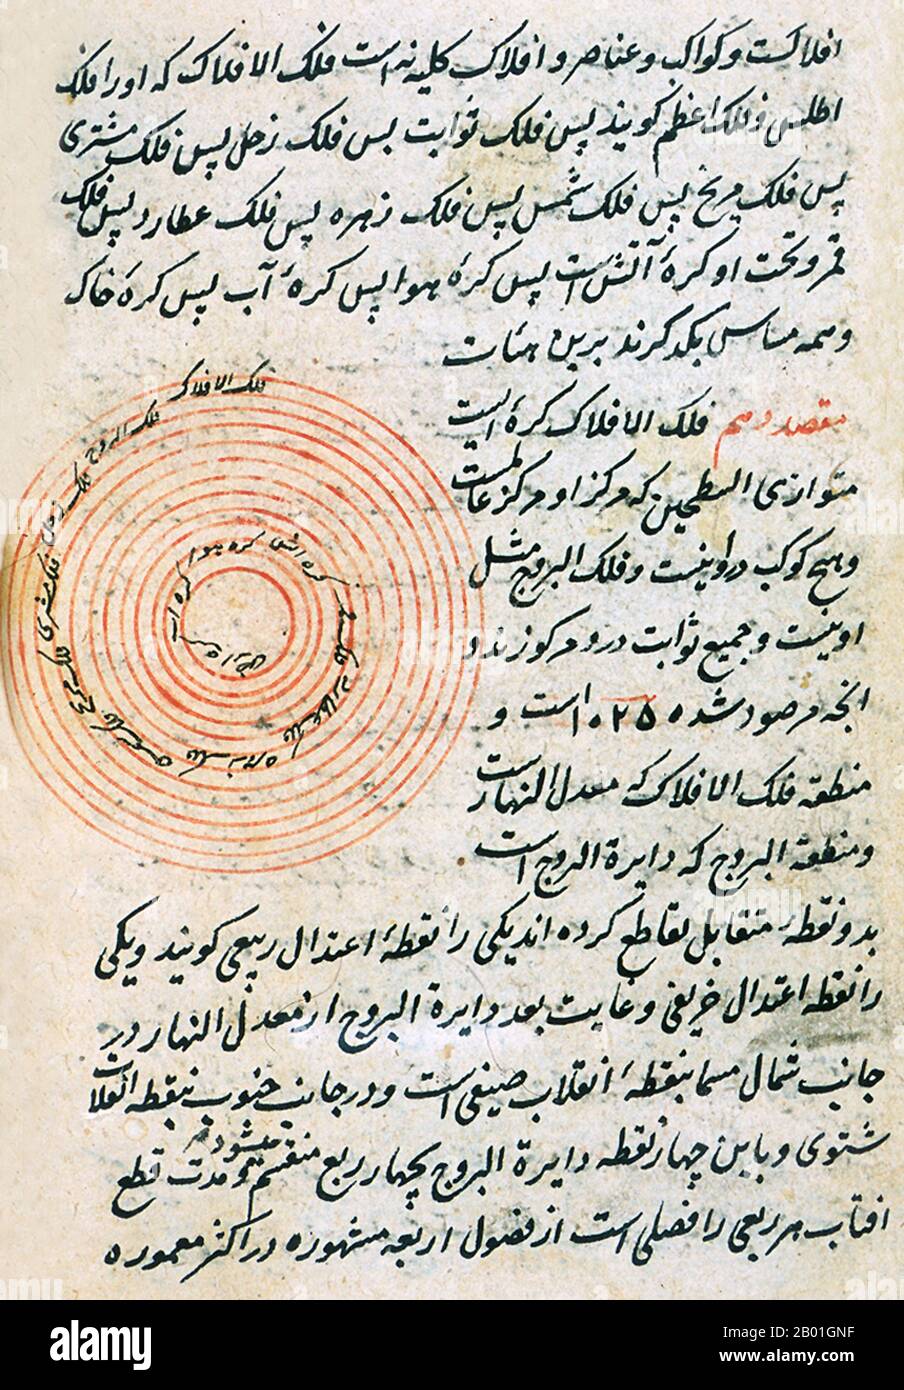 افلاکست و کواکب و عناصر و افلاک کلیه نه است فلک الافلاک که اورا فلک
اطلس و فلک اعظم کویند پس فلک ثوابت پس فلک زحل پس فلک مشتری
پس فلک مریخ پس فلک شمس پس فلک زهره پس فلک عطارد پس فلک
قمر و تحت او کرهٔ آتش است پس کرهٔ هوا پس کرهٔ آب پس کرهٔ خاک
و همه مماس یکدکرند برین هیئات
مقصد دهم فلک الافلاک کرهٔ ایست
متوازی السطحین که مرکز او مرکز عالمست
و هیچ کوکب در او نیست و فلک البروج مثل
اونیست و جمیع ثوابت درو مرکوزند و
انچه مرصود شده ۱۰۲۵ است و
منطقه فلک الافلاک که معدل النهار است
و منطقة البروج که دایرة البروج است
بدو نقطهٔ متقابل تقاطع کرده اند یکی را نقطهٔ اعتدال ربیعی کویند و یکی
را نقطه اعتدال خریفی و غایت بعد دایرة البروج از معدل النهار در
جانب شمال مسما بنقطهٔ انقلاب صیفی است و در جانب جنوب بنقطه انقلاب
شتوی و باین چهار نقطه دایرة البروج بچهار ربع منقسم میشود و مدت قطع
افتاب هر ربعی را فصلی است از فصول اربعه مشهوره در اکثر معموره
فلک الافلاک
فلک البروج
فلک زحل
فلک مشتری
فلک مریخ
فلک شمس
فلک زهره
فلک عطارد
فلک قمر
کره اتش
کره هوا
کره اب
کره ارض
alamy
Image ID: 2B01GNF
www.alamy.com